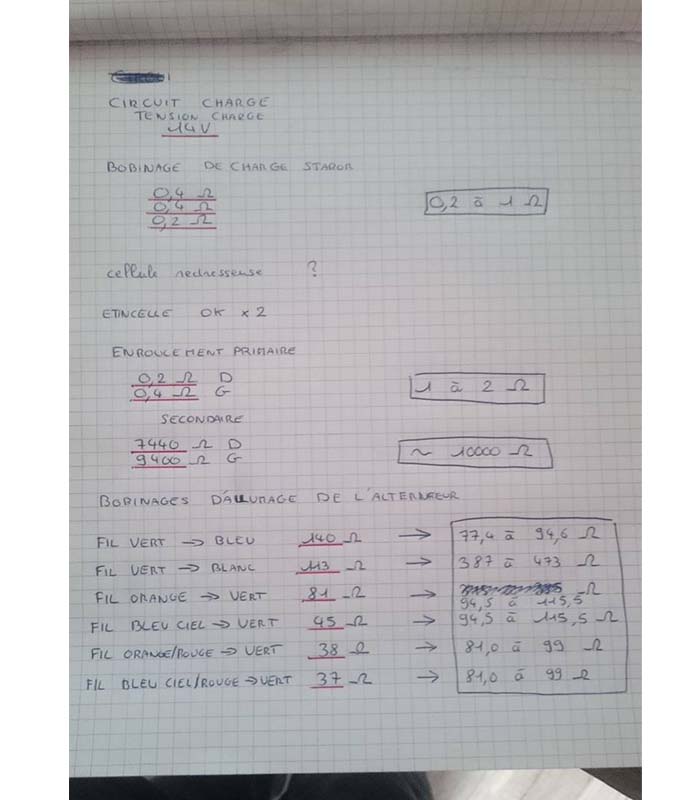 CIRCUIT CHARGE
TENSION CHARGE
14V
BOBINAGE DE CHARGE STATOR
0,4 Ω
0,4 Ω
0,2 Ω
0,2 à 1 Ω
cellule redresseuse ?
ETINCELLE OK x 2
ENROULEMENT PRIMAIRE
0,2 Ω D
0,4 Ω G
1 à 2 Ω
SECONDAIRE
7440 Ω D
9400 Ω G
~ 10000 Ω
BOBINAGES D'ALLUMAGE DE L'ALTERNATEUR
FIL VERT → BLEU 140 Ω → 77,4 à 94,6 Ω
FIL VERT → BLANC 113 Ω → 387 à 473 Ω
FIL ORANGE → VERT 81 Ω → Ω
94,5 à 115,5
FIL BLEU CIEL → VERT 45 Ω → 94,5 à 115,5 Ω
FIL ORANGE/ROUGE → VERT 38 Ω → 81,0 à 99 Ω
FIL BLEU CIEL/ROUGE → VERT 37 Ω → 81,0 à 99 Ω